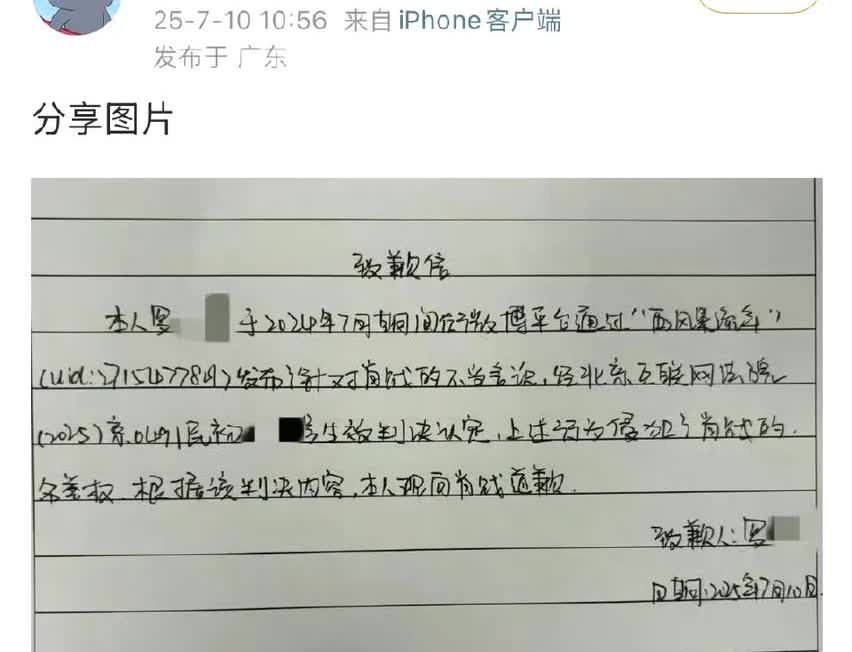 25-7-10 10:56 来自 iPhone客户端
发布于 广东
分享图片
致歉信
本人罗 于2024年7月期间在微博平台通过“西风果流年”
(uid:)发布针对肖战的不当言论,经北京互联网法院
(2025)京0491民初 号生效判决认定,上述行为侵犯了肖战的
名誉权 根据该判决内容,本人现向肖战道歉.
致歉人:罗
日期:2025年7月10日